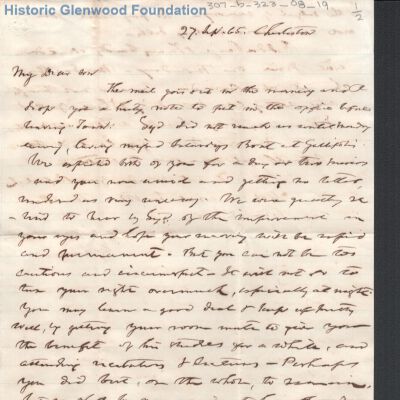 Historic Glenwood Foundation
307-b-323-08-19
1/2
27 Sept. 65. Charleston
My Dear son
The mail goes out in the morning and I
drop you a hasty note to put in the office before
leaving Town. Syd did not reach us until Monday
evening, having missed Saturdays Boat at
We expected both of you for a day or two
and your non arrival and getting no letter,
rendered us very uneasy. We were greatly re
-lieved to hear by Syd of the improvement in
your eyes and hope your recovery will be rapid
and permanent. But you can not be too
cautious and circumspect. It will not do to
tax your sight overmuch, especially at night.
You may learn a good deal & keep up pretty
well, by getting your room mate to give you
the benefit of his studies for a while, and
attending recitations & lectures. Perhaps
you did best, on the whole, to remain,